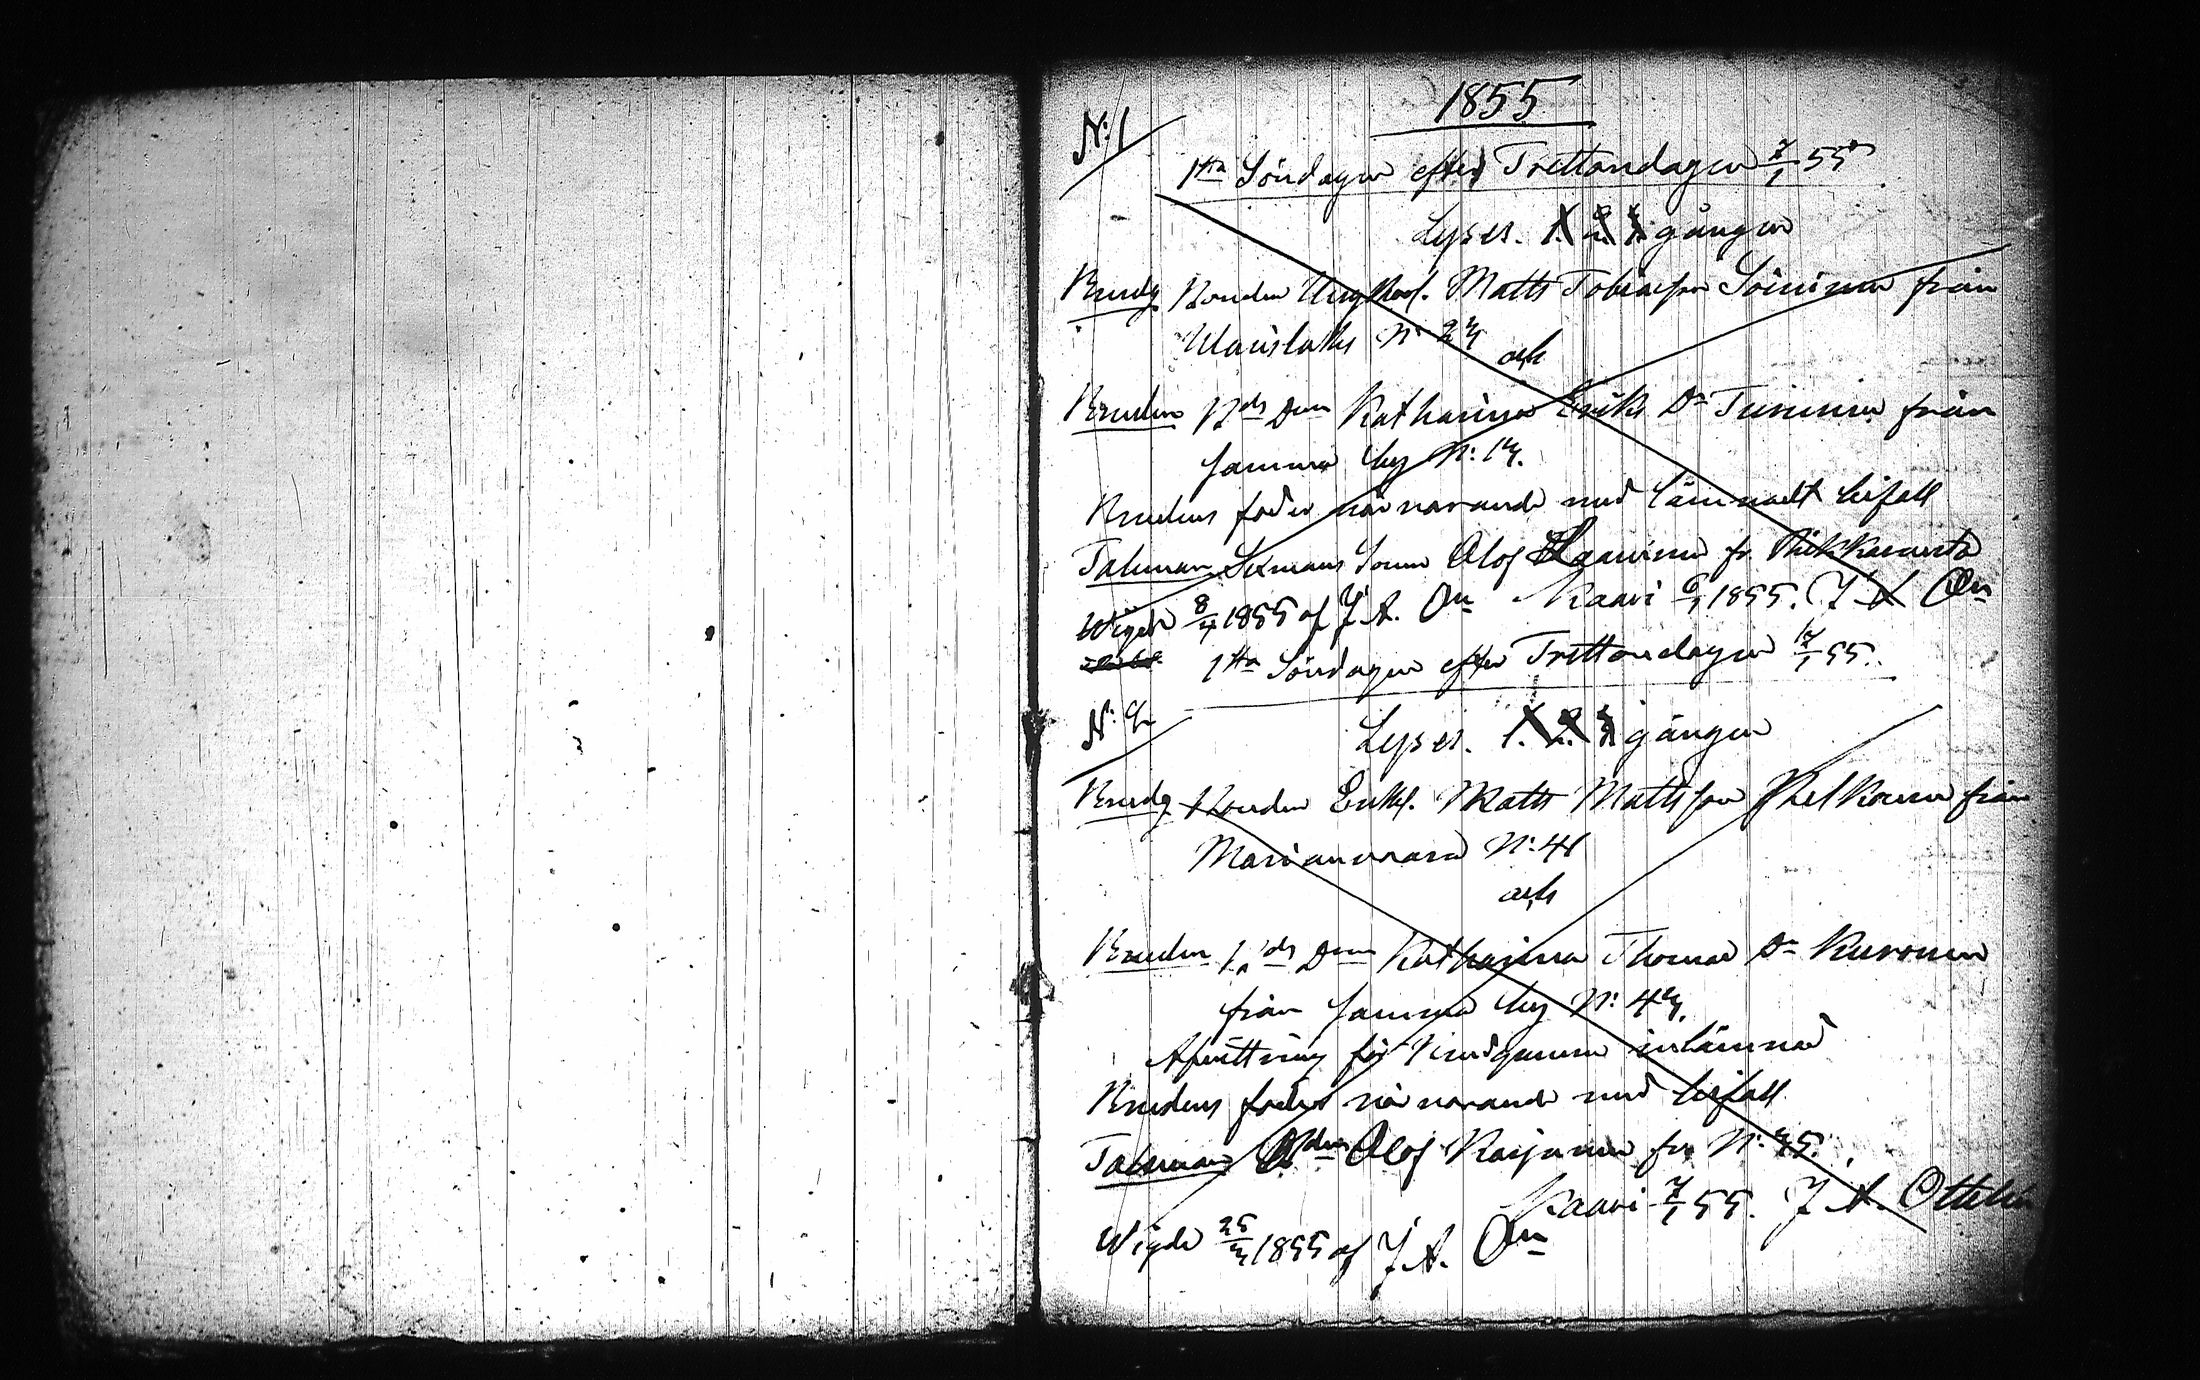 1855
N:1
1sta Söndagen efter Trettondagen 7/1 55
Lyses. 1. 2. 3. gången
Brudg. Bonden Ungkarl. Matts Tobiasson Soininen från
N: 23
och
Bruden Bds Dren Katharina Eriks Dr Turunen från
samma by N: 13.
Brudens fader närvarande med lämnadt bifall
Talman Sexmans Sonen Olof fr.
Wigde 8/4 1855 af J. A. On Kaavi 6/1 1855. J A On
1sta Söndagen efter Trettondagen 55.
N: 2
Lyses. 1. 2. 3. gången
Brudg Bonden Enkl. Matts Mattsson från
Marianvaara N: 41
och
Bruden Bds Dren Katharina Thomas Dr Kuronen
från samma by N: 43.
Afvittring för brudgummen inlämnad
Brudens fader närvarande med bifall
Talman Bden Olof fr. N: 35.
Kaavi 7/1 55. J. A. Ottelin
Wigde 25/3 1855 af J. A. On